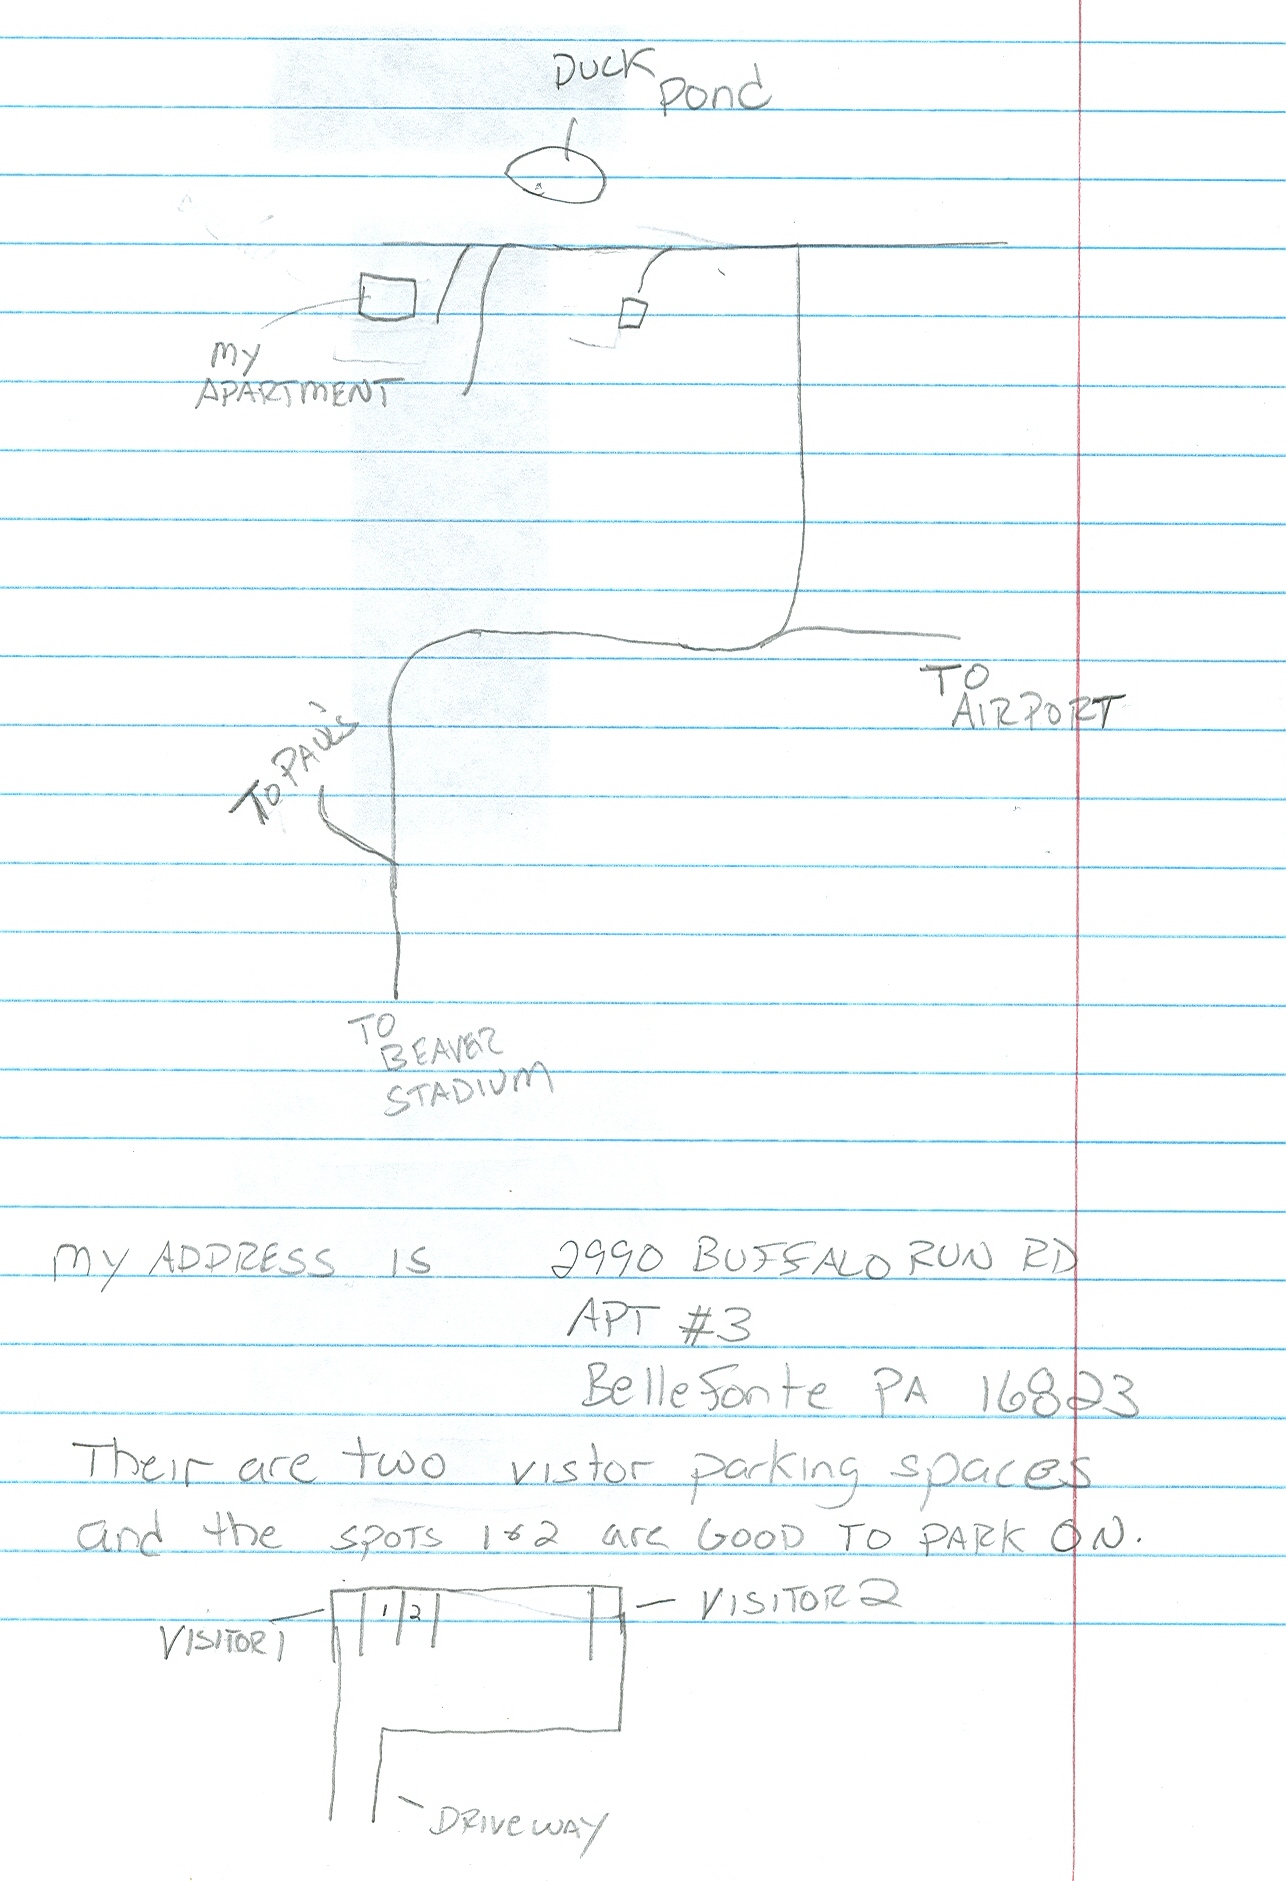 DUCK
pond
my
APARTMENT
TO
AIRPORT
TO PAUL'S
TO
BEAVER
STADIUM
MY ADDRESS IS 2990 BUFFALO RUN RD
APT #3
Bellefonte PA 16823
Their are two vistor parking spaces
and the SPOTS 1&2 are GOOD TO PARK ON.
VISITOR 1
1
2
VISITOR 2
DRIVEWAY